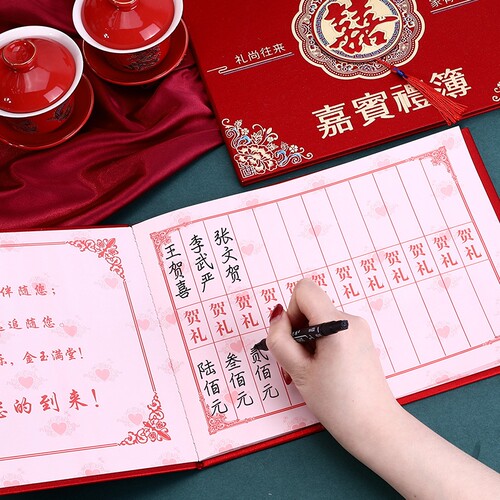 囍
礼尚往来
嘉賓禮簿
伴随您；
追随您
乐，金玉满堂！
的到来！
王贺喜
贺礼
陆佰元
李武严
贺礼
叁佰元
张文贺
贺礼
贰佰元
贺
贺
贺
贺礼
贺礼
贺礼
贺礼
贺礼
贺礼